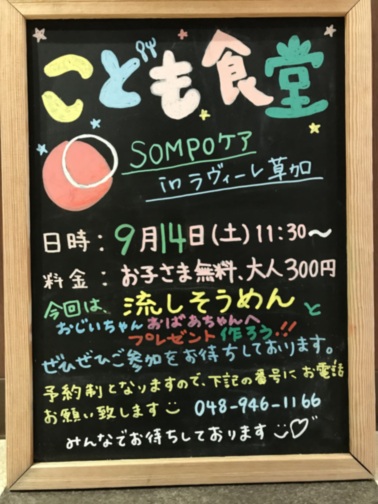 こども食堂
SOMPOケア
in ラヴィーレ草加
日時：9月14日(土)11:30〜
料金：お子さま無料、大人300円
今回は、流しそうめんと
おじいちゃんおばあちゃんへ
プレゼント作ろう!!
ぜひぜひご参加をお待ちしております。
予約制となりますので、下記の番号にお電話
お願い致します 048-946-1166
みんなでお待ちしております